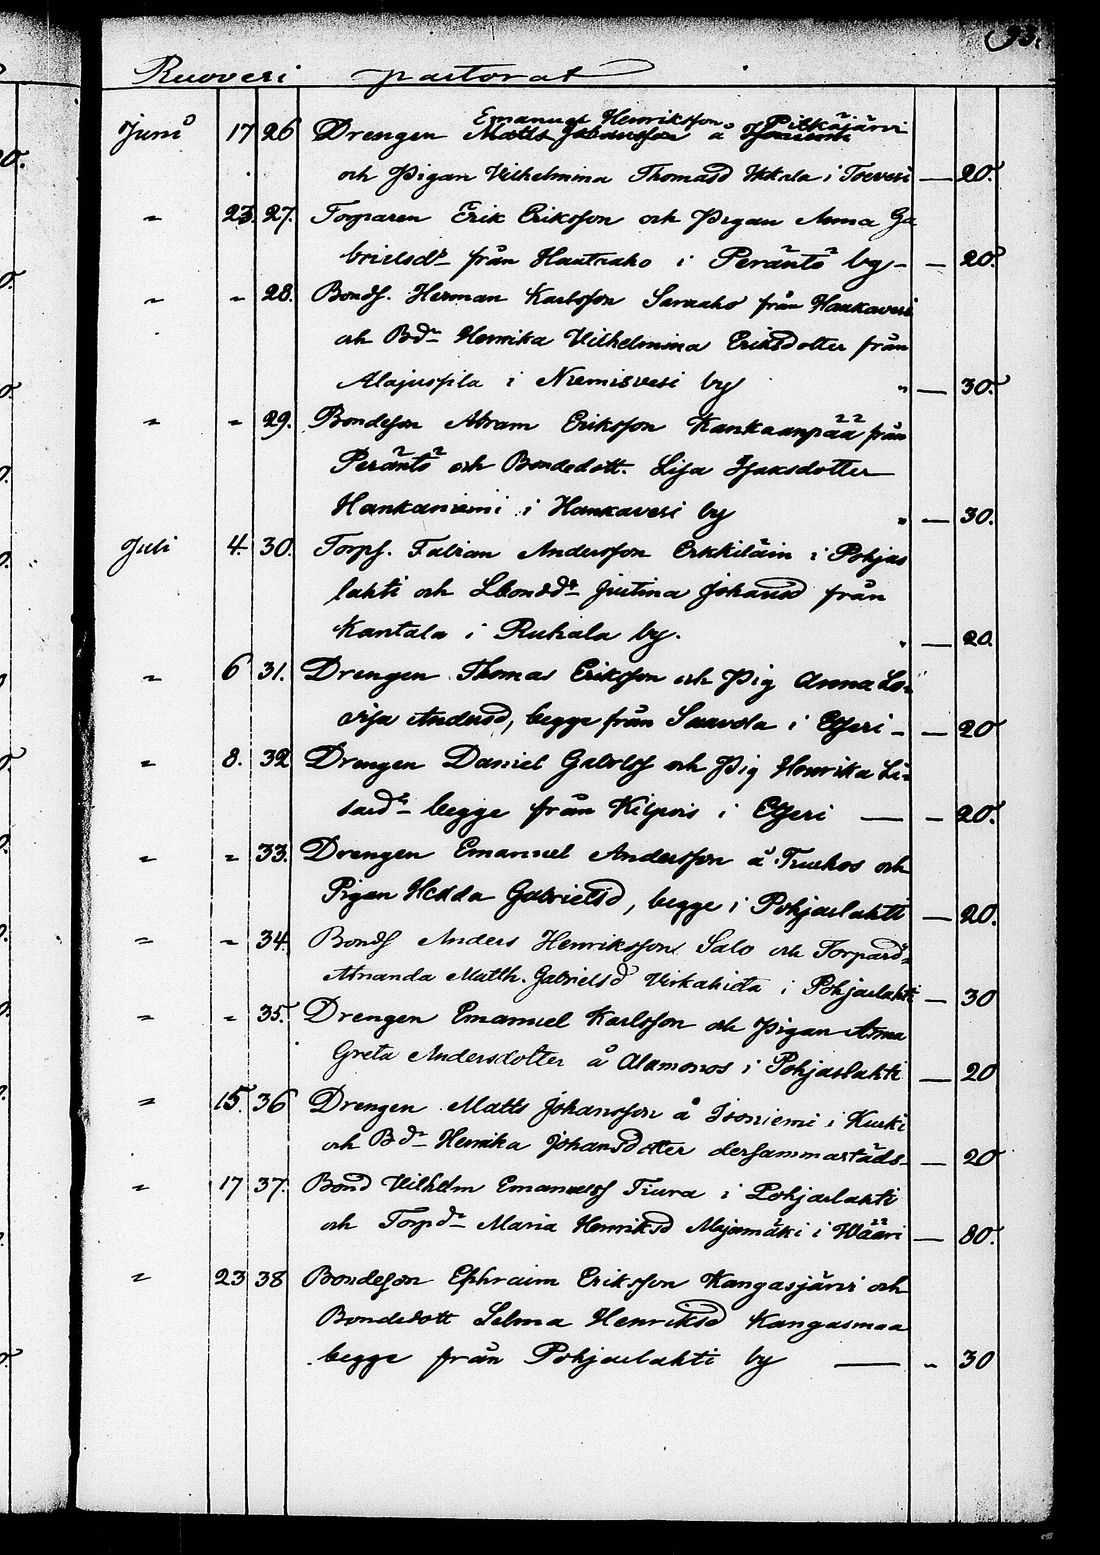 93.
Ruovesi pastorat
Juni 17 26 Drengen Emanuel Henriksson å Pitkäjärvi
och Pigan Vilhelmina Thomasd Ukkola i Toevesi — 20.
" 23. 27. Torparen Erik Eriksson och Pigan Anna Ga
brielsdr från Hautaaho i Peräntö by - — 20.
" " 28. Bonds. Herman Karlsson Saraaho från Hankavesi
och Bdr Henrika Vilhelmina Eriksdotter från
Alajuspla i Niemisvesi by " — 30.
" " 29. Bondeson Abram Eriksson Kankaanpää från
Peräntö och Bondedott. Lisa Isaksdotter
Hankaniemi i Hankavesi by " — 30.
Juli 4. 30. Torps. Fabian Andersson Erkkiläin i Pohjas
lahti och Lbonddr Justina Johansd från
Kantala i Ruhala by. " — 20.
" 6 31. Drengen Thomas Eriksson och Pig Anna Lo-
visa Andersd, begge från Saavola i Etseri - — 20
" 8. 32 Drengen Daniel Gabrlss och Pig Henrika Li-
sasdr begge från Kilpois i Etseri — — 20.
" " 33. Drengen Emanuel Andersson å Tuuhos och
Pigan Hedda Gabrielsd, begge i Pohjaslahti — 20.
" " 34. Bonds Anders Henriksson Salo och Torpard
Amanda Math. Gabrielsd Virkahieta i Pohjaslahti — 30
" " 35. Drengen Emanuel Karlsson och Pigan Anna
Greta Andersdotter å Alamonos i Pohjaslahti — 20
" 15. 36 Drengen Matts Johansson å Isoniemi i Kurki
och Bdr Henrika Johansdotter dersammastäds - — 20
" 17 37. Bond Vilhelm Emanuelss Tiura i Pohjaslahti
och Torpdr Maria Henriksd Majamäki i Wääri — 80.
" 23 38 Bondeson Ephraim Eriksson Kangasjärvi och
Bondedott Selma Henriksd Kangasmaa
begge från Pohjaslahti by — " 30